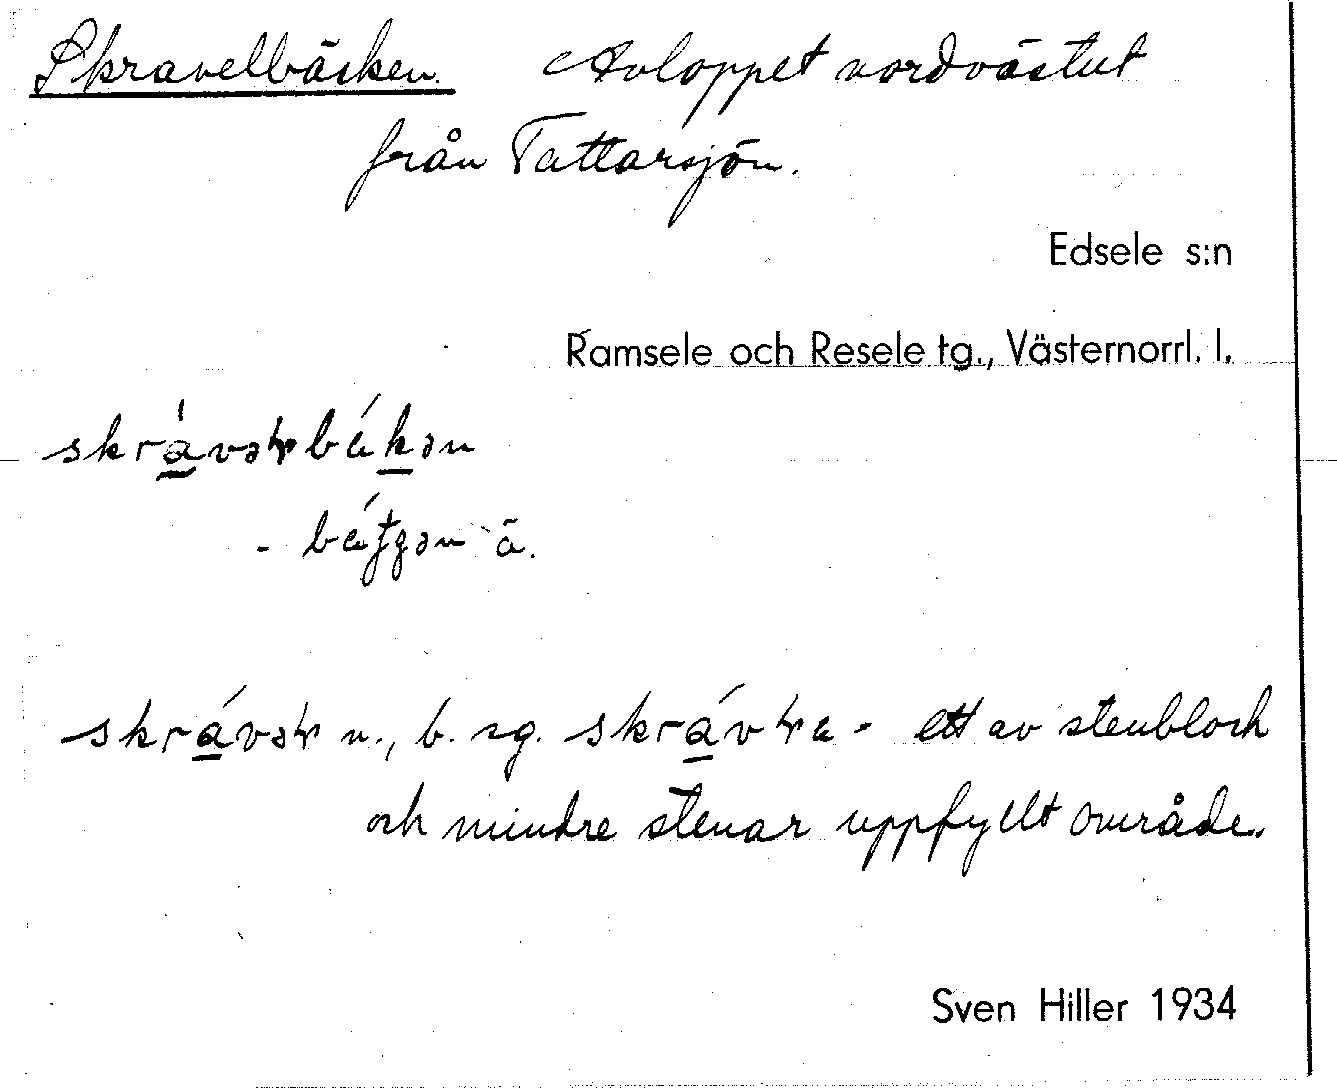 Skravelbäcken. Avloppet nordvästut
från Tattarsjön.
Edsele s:n
Ramsele och Resele tg., Västernorrl. l.
- ä.
n., b. sg. - ett av stenblock
och mindre stenar uppfyllt område.
Sven Hiller 1934